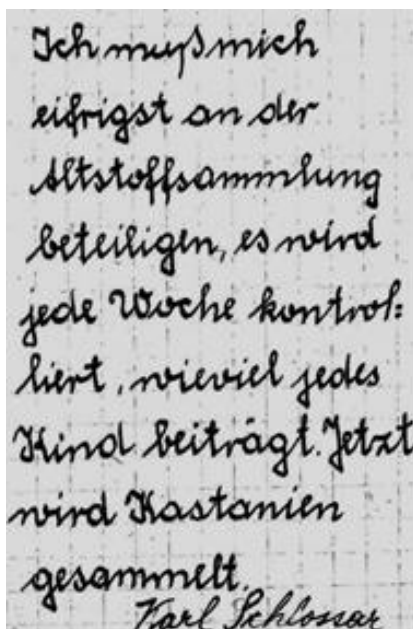 Ich muß mich
eifrigst an der
Altstoffsammlung
beteiligen, es wird
jede Woche kontrol=
liert, wieviel jedes
Kind beiträgt. Jetzt
wird Kastanien
gesammelt.
Karl Schlossar